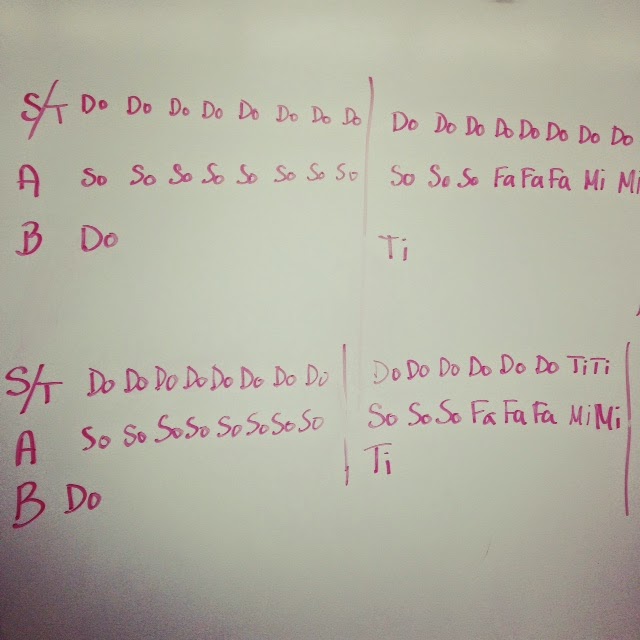 S/T Do Do Do Do Do Do Do Do | Do Do Do Do Do Do Do Do
A So So So So So So So So | So So So Fa Fa Fa Mi Mi
B Do | Ti
S/T Do Do Do Do Do Do Do Do | Do Do Do Do Do Do Ti Ti |
A So So So So So So So So | So So So Fa Fa Fa Mi Mi |
B Do | Ti |